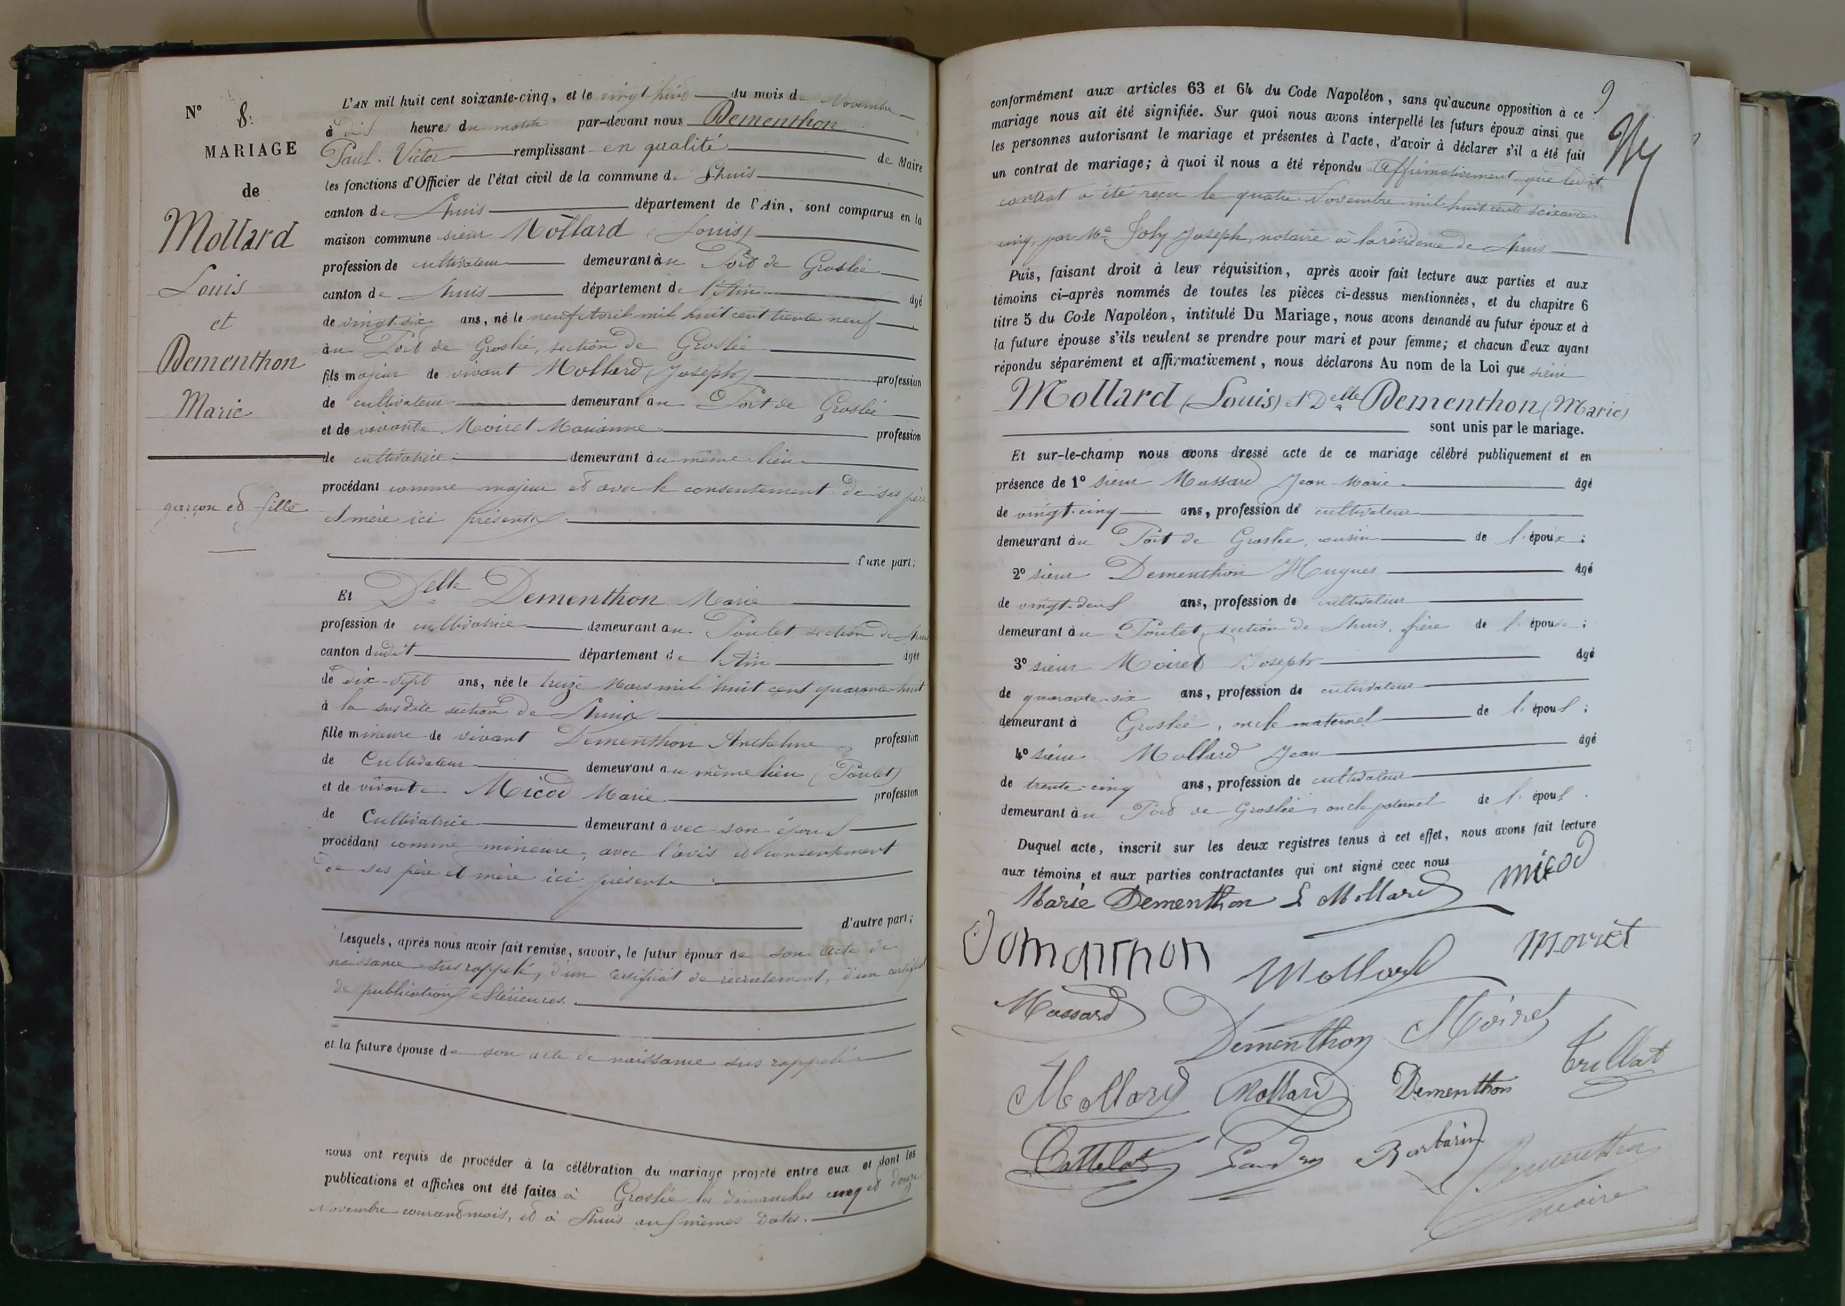 N° 8.
MARIAGE
de
Mollard
Louis
et
Dementhon
Marie
garçon et fille
L'AN mil huit cent soixante-cinq, et le vingt huit du mois de Novembre
à dix heures du matin par-devant nous Dementhon
Paul Victor remplissant en qualité de Maire
les fonctions d'Officier de l'état civil de la commune de Lhuis
canton de Lhuis département de l'Ain, sont comparus en la
maison commune sieur Mollard (Louis)
profession de cultivateur demeurant au Port de Groslée
canton de Lhuis département de l'Ain âgé
de vingt-six ans, né le neuf avril mil huit cent trente neuf
au Port de Groslée, section de Groslée
fils majeur de vivant Mollard (Joseph) profession
de cultivateur demeurant au Port de Groslée
et de vivante Moiret Marianne profession
de cultivatrice demeurant au même lieu
procédant comme majeur et avec le consentement de ses père
et mère ici présents
d'une part;
Et Delle Dementhon Marie
profession de cultivatrice demeurant au Poulet section de Lhuis
canton dudit département de l'Ain âgée
de dix-sept ans, née le treize Mars mil huit cent quarante huit
à la susdite section de Lhuis
fille mineure de vivant Dementhon Anthelme profession
de Cultivateur demeurant au même lieu (Poulet)
et de vivante Micod Marie profession
de Cultivatrice demeurant avec son époux
procédant comme mineure, avec l'avis et consentement
de ses père et mère ici présents
d'autre part;
Lesquels, après nous avoir fait remise, savoir, le futur époux de son acte de
naissance susrappelé, d'un certificat de recrutement, d'un certificat
de publications
et la future épouse de son acte de naissance sus rappelé
nous ont requis de procéder à la célébration du mariage projeté entre eux et dont les
publications et affiches ont été faites à Groslée les dimanches cinq et douze
Novembre courant mois, et à Lhuis aux mêmes dates.
9
conformément aux articles 63 et 64 du Code Napoléon, sans qu'aucune opposition à ce
mariage nous ait été signifiée. Sur quoi nous avons interpellé les futurs époux ainsi que
les personnes autorisant le mariage et présentes à l'acte, d'avoir à déclarer s'il a été fait
un contrat de mariage; à quoi il nous a été répondu Affirmativement que ledit
contrat a été reçu le quatre Novembre mil huit cent soixante
cinq, par Me Joly Joseph, notaire à la résidence de Lhuis
Puis, faisant droit à leur réquisition, après avoir fait lecture aux parties et aux
témoins ci-après nommés de toutes les pièces ci-dessus mentionnées, et du chapitre 6
titre 5 du Code Napoléon, intitulé Du Mariage, nous avons demandé au futur époux et à
la future épouse s'ils veulent se prendre pour mari et pour femme; et chacun d'eux ayant
répondu séparément et affirmativement, nous déclarons Au nom de la Loi que sieur
Mollard (Louis) et Delle Dementhon (Marie)
sont unis par le mariage.
Et sur-le-champ nous avons dressé acte de ce mariage célébré publiquement et en
présence de 1° sieur Massard Jean-Marie âgé
de vingt-cinq ans, profession de cultivateur
demeurant au Port de Groslée, cousin de l'époux;
2° sieur Dementhon Hugues âgé
de vingt-deux ans, profession de cultivateur
demeurant au Poulet, section de Lhuis, frère de l'épouse;
3° sieur Moiret Joseph âgé
de quarante-six ans, profession de cultivateur
demeurant à Groslée, oncle maternel de l'époux;
4° sieur Mollard Jean âgé
de trente-cinq ans, profession de cultivateur
demeurant au Port de Groslée, oncle paternel de l'époux.
Duquel acte, inscrit sur les deux registres tenus à cet effet, nous avons fait lecture
aux témoins et aux parties contractantes qui ont signé avec nous
Marie Dementhon L Mollard micod
Domanthon Mollard moiret
Massard Dementhon Moiret
Mollard Mollard Dementhon Trillat
Cottelat Barbarin
Dementhon
maire